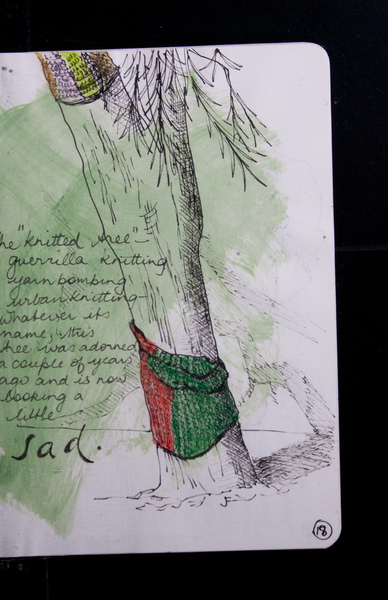 he "knitted tree" –
guerrilla knitting
yarn bombing
urban knitting –
whatever its
name, this
tree was adorned
a couple of years
ago and is now
looking a
little
sad.
18